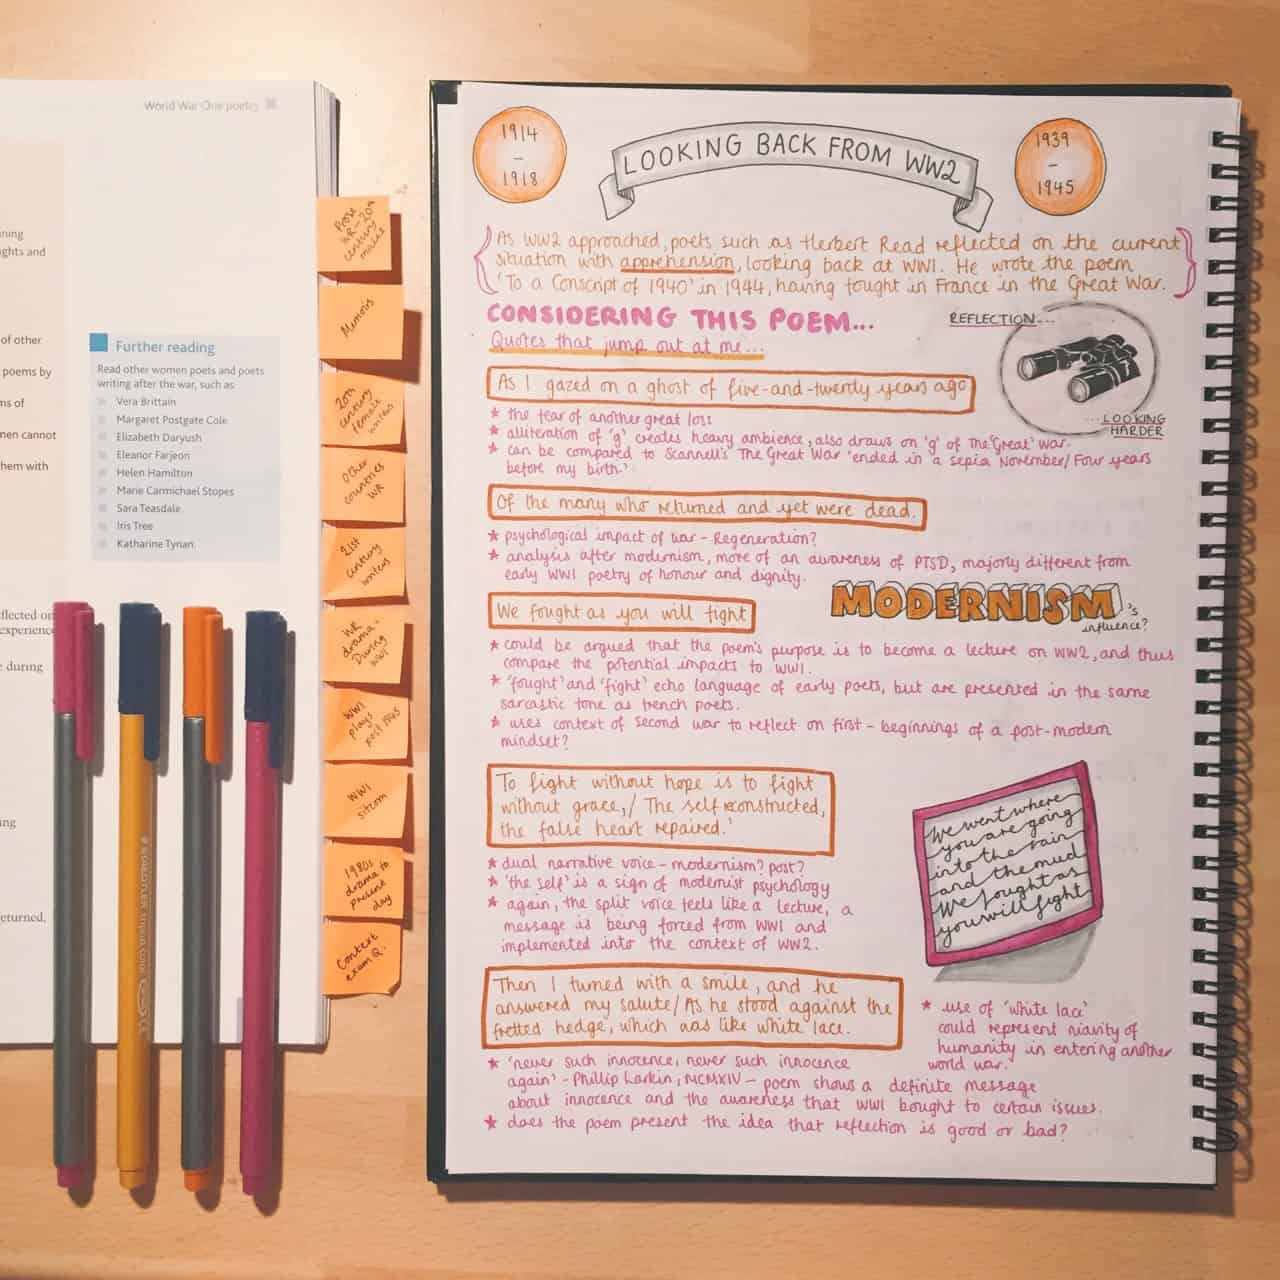 World War One poetry
ning
ghts and
of other
poems by
ms of
men cannot
hem with
Further reading
Read other women poets and poets
writing after the war, such as
Vera Brittain
Margaret Postgate Cole
Elizabeth Daryush
Eleanor Farjeon
Helen Hamilton
Marie Carmichael Stopes
Sara Teasdale
Iris Tree
Katharine Tynan.
flected on
experience
e during
ng
eturned,
STAEDTLER
Prose
WR - 20th
century
Memoirs
20th
century
female
writers
Other
countries
WR
21st
century
writers
WR
drama -
During
WW1
WW1
plays
post 1945
WW1
sitcom
1980s
drama to
present
day
Context
exam Q.
1914
-
1918
LOOKING BACK FROM WW2
1939
-
1945
As WW2 approached, poets such as Herbert Read reflected on the current
situation with apprehension, looking back at WW1. He wrote the poem
'To a Conscript of 1940' in 1944, having fought in France in the Great War.
CONSIDERING THIS POEM...
Quotes that jump out at me...
REFLECTION...
...LOOKING
HARDER
As I gazed on a ghost of five-and-twenty years ago
* the fear of another great loss
* alliteration of 'g' creates heavy ambience, also draws on 'g' of The 'Great' war.
* can be compared to Scannell's 'The Great War' 'ended in a sepia November/ Four years
before my birth.'
Of the many who returned and yet were dead.
* psychological impact of war - Regeneration?
* analysis after modernism, more of an awareness of PTSD, majorly different from
early WW1 poetry of honour and dignity.
MODERNISM's
influence?
We fought as you will fight
* could be argued that the poem's purpose is to become a lecture on WW2, and thus
compare the potential impacts to WW1.
* 'fought' and 'fight' echo language of early poets, but are presented in the same
sarcastic tone as trench poets.
* uses context of second war to reflect on first - beginnings of a post-modern
mindset?
To fight without hope is to fight
without grace,/ The self reconstructed,
the false heart repaired.'
* dual narrative voice - modernism? post?
* 'the self' is a sign of modernist psychology
* again, the split voice feels like a lecture, a
message is being forced from WW1 and
implemented into the context of WW2.
We went where
you are going
into the rain
and the mud
We fought as
you will fight
Then I turned with a smile, and he
answered my salute/ As he stood against the
fretted hedge, which was like white lace.
* use of 'white lace'
could represent niavity of
humanity in entering another
world war.
* 'never such innocence, never such innocence
again' - Phillip Larkin, MCMXIV - poem shows a definite message
about innocence and the awareness that WW1 bought to certain issues.
* does the poem present the idea that reflection is good or bad?